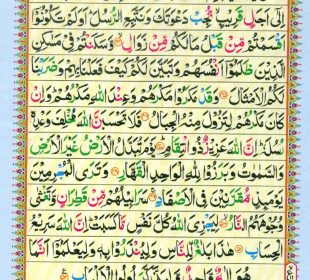 اِلٰۤى اَجَلٍ قَرِيْبٍۙ نُّجِبْ دَعْوَتَكَ وَنَتَّبِعِ الرُّسُلَؕ اَوَلَمْ تَكُوْنُوْۤا
اَقْسَمْتُمْ مِّنْ قَبْلُ مَا لَكُمْ مِّنْ زَوَالٍۙ وَّسَكَنْتُمْ فِىْ مَسٰكِنِ
الَّذِيْنَ ظَلَمُوْۤا اَنْفُسَهُمْ وَتَبَيَّنَ لَكُمْ كَيْفَ فَعَلْنَا بِهِمْ وَضَرَبْنَا
لَكُمُ الْاَمْثَالَ وَقَدْ مَكَرُوْا مَكْرَهُمْ وَعِنْدَ اللّٰهِ مَكْرُهُمْؕ وَاِنْ
كَانَ مَكْرُهُمْ لِتَزُوْلَ مِنْهُ الْجِبَالُ فَلَا تَحْسَبَنَّ اللّٰهَ مُخْلِفَ وَعْدِهٖ
رُسُلَهٗؕ اِنَّ اللّٰهَ عَزِيْزٌ ذُو انْتِقَامٍؕ يَوْمَ تُبَدَّلُ الْاَرْضُ غَيْرَ الْاَرْضِ
وَالسَّمٰوٰتُ وَبَرَزُوْا لِلّٰهِ الْوَاحِدِ الْقَهَّارِ وَتَرَى الْمُجْرِمِيْنَ
يَوْمَئِذٍ مُّقَرَّنِيْنَ فِى الْاَصْفَادِۚ سَرَابِيْلُهُمْ مِّنْ قَطِرَانٍ وَّتَغْشٰى
وُجُوْهَهُمُ النَّارُۙ لِيَجْزِىَ اللّٰهُ كُلَّ نَفْسٍ مَّا كَسَبَتْؕ اِنَّ اللّٰهَ سَرِيْعُ
الْحِسَابِ هٰذَا بَلٰغٌ لِّلنَّاسِ وَلِيُنْذَرُوْا بِهٖ وَلِيَعْلَمُوْۤا اَنَّمَا
هُوَ اِلٰهٌ وَّاحِدٌ وَّلِيَذَّكَّرَ اُولُوا الْاَلْبَابِ